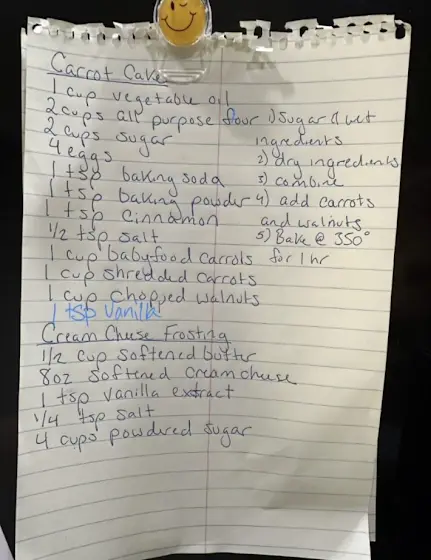 Carrot Cake
1 cup vegetable oil
2 cups all purpose flour
2 cups sugar
4 eggs
1 tsp baking soda
1 tsp baking powder
1 tsp cinnamon
1/2 tsp salt
1 cup babyfood carrots
1 cup shredded carrots
1 cup chopped walnuts
1 tsp vanilla
1) Sugar & wet
ingredients
2) dry ingredients
3) combine
4) add carrots
and walnuts
5) Bake @ 350°
for 1 hr
Cream Cheese Frosting
1/2 cup softened butter
8oz softened cream cheese
1 tsp vanilla extract
1/4 tsp salt
4 cups powdered sugar